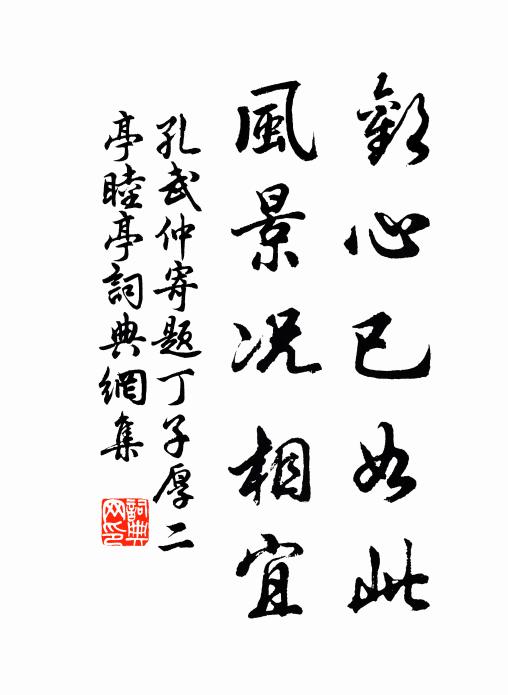 歡心已如此
風景况相宜
孔武仲寄题丁子厚二
亭睦亭詞典網集
詞典
网印